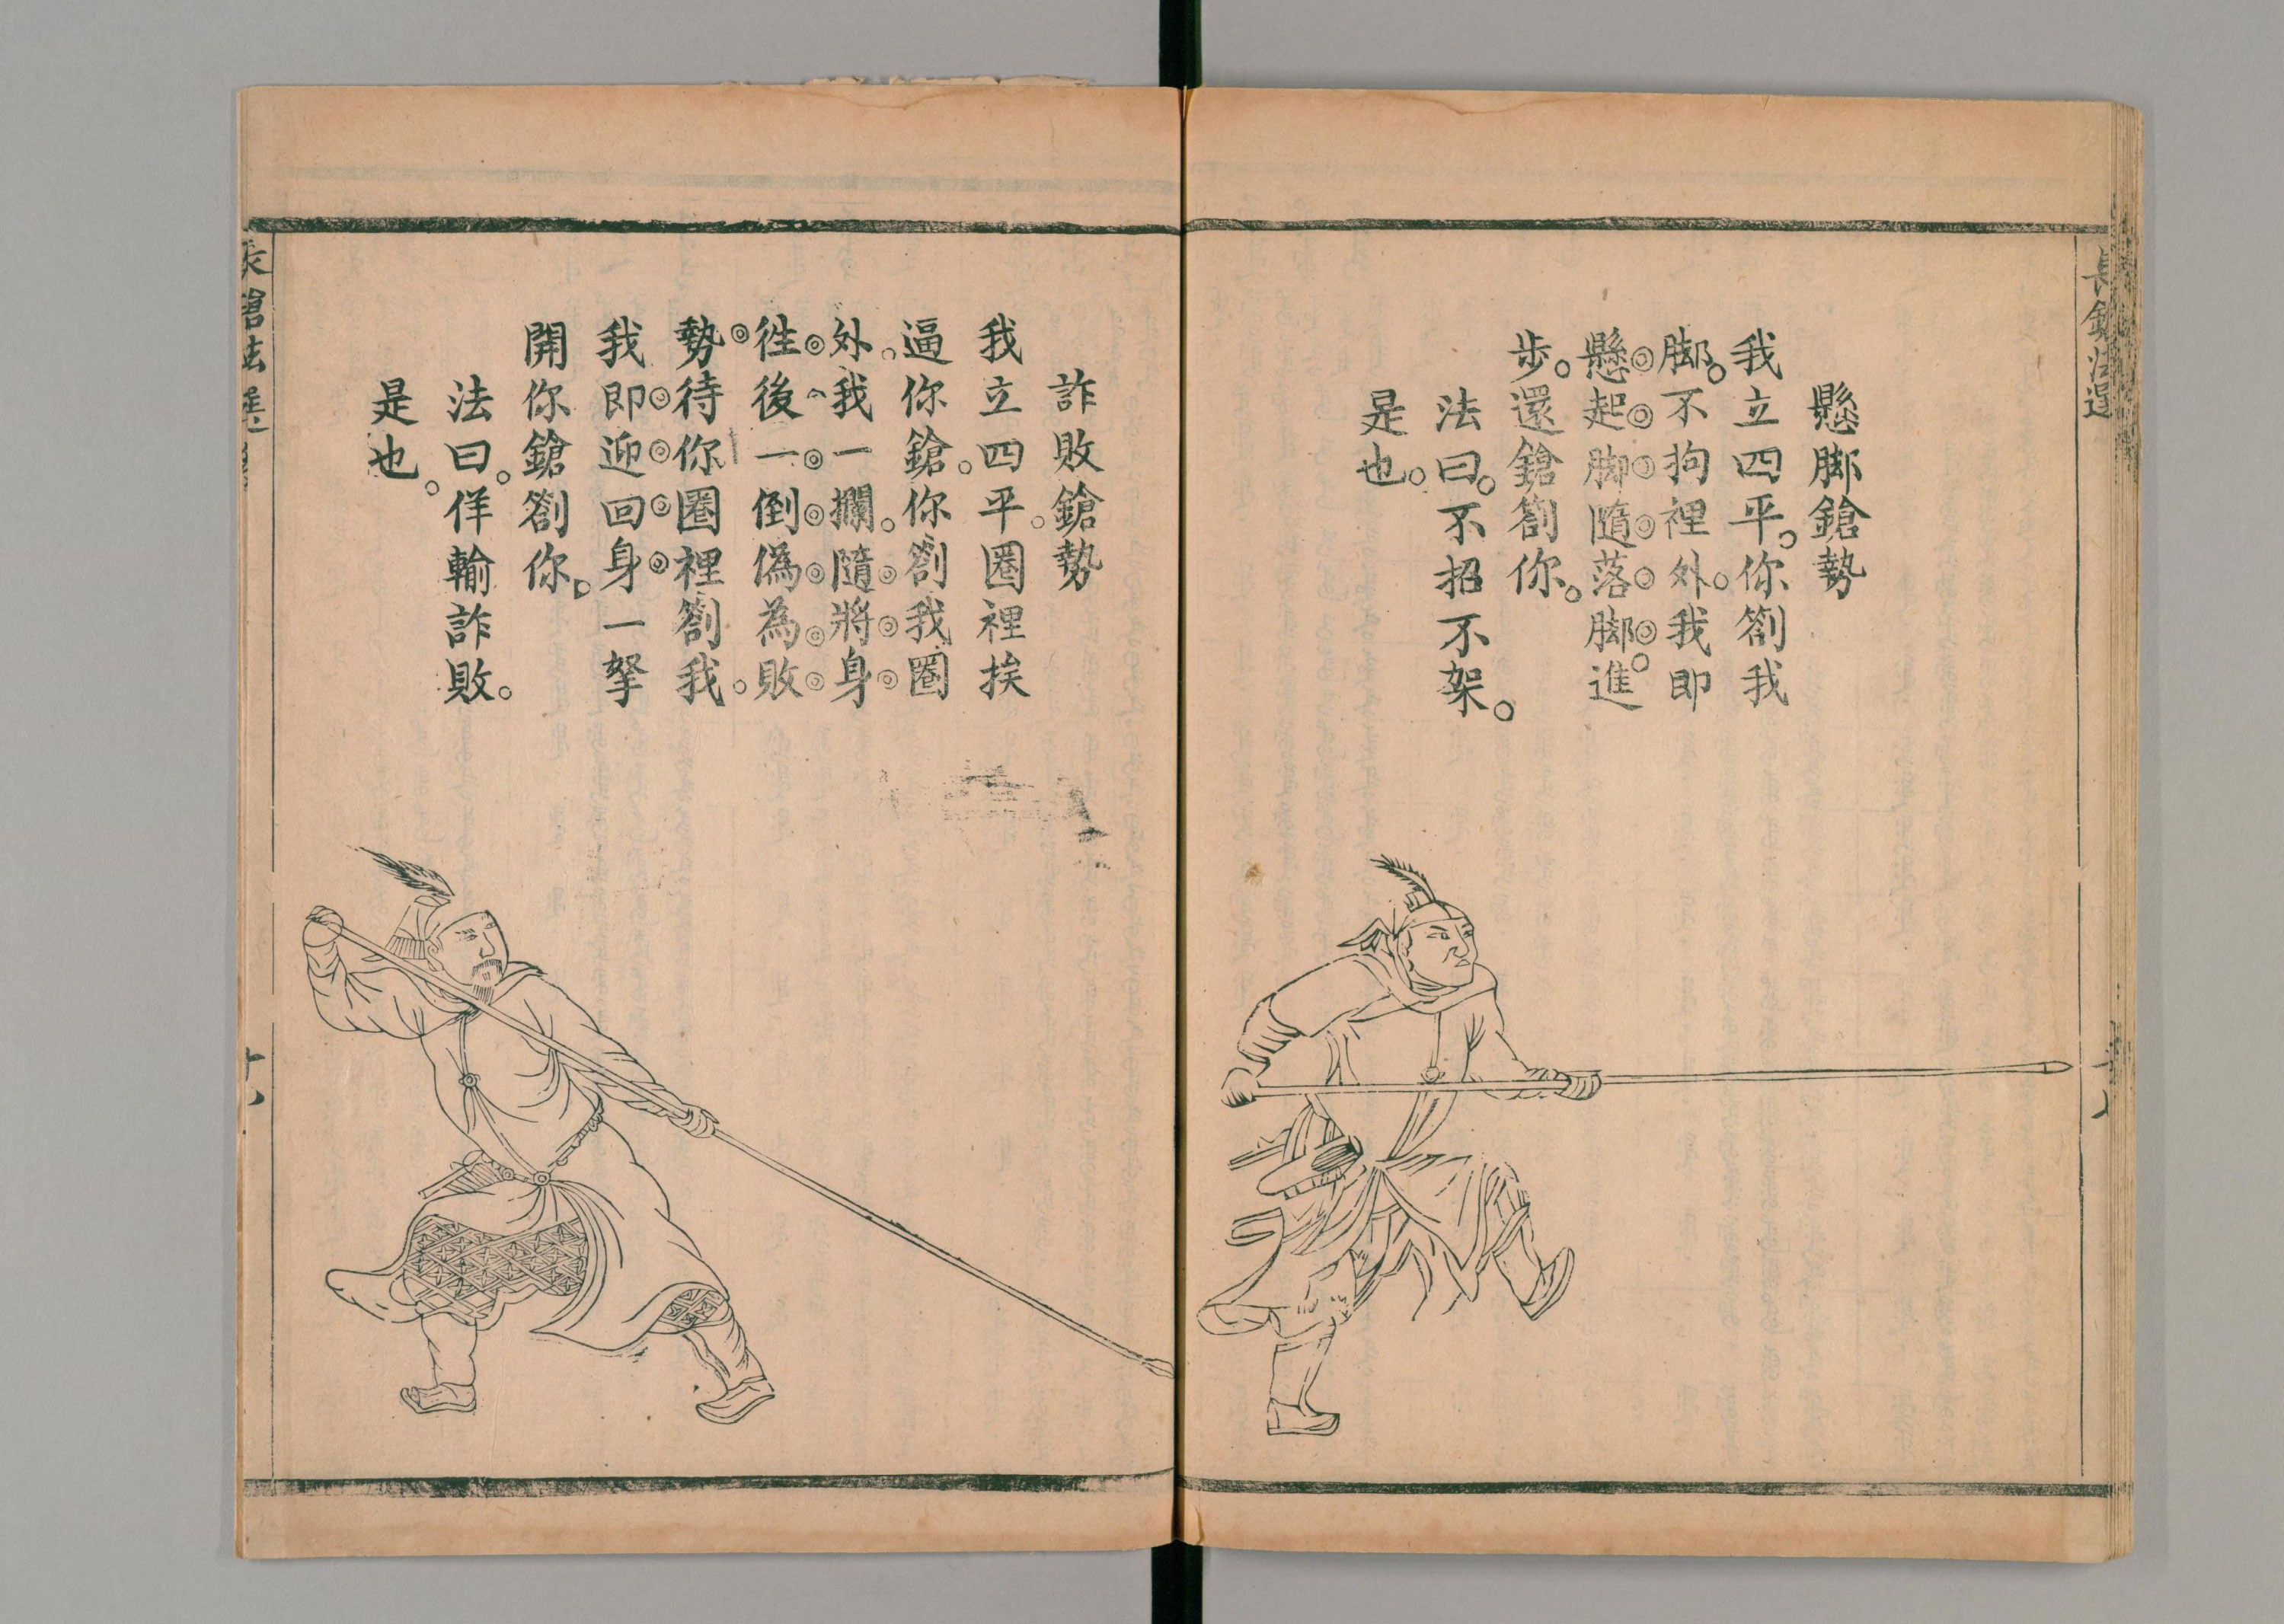 長鎗法選
懸脚鎗勢
我立四平。你劄我
脚。不拘裡外。我即
懸起脚隨落脚。進
步。還鎗劄你。
法曰。不招不架。
是也。
詐敗鎗勢
我立四平。圈裡挨
逼你鎗。你劄我圈
外。我一攔。隨將身
徃後一倒僞為敗
勢待你圈裡劄我。
我即迎回身一拏
開你鎗劄你。
法曰。佯輸詐敗。
是也。
長鎗法選
十八